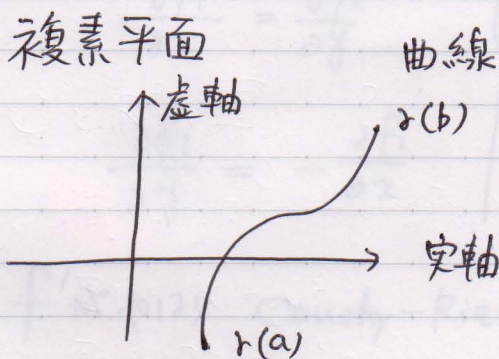 複素平面
曲線
虚軸
γ(b)
実軸
γ(a)